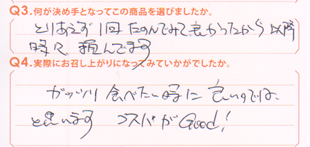 Q3.何が決め手となってこの商品を選びましたか。
とりあえず1回たのんでみて良かったから以降
時々頼んでます
Q4.実際にお召し上がりになってみていかがでしたか。
ガッツリ食べたい時に良いのでは
と思います コスパがGood!